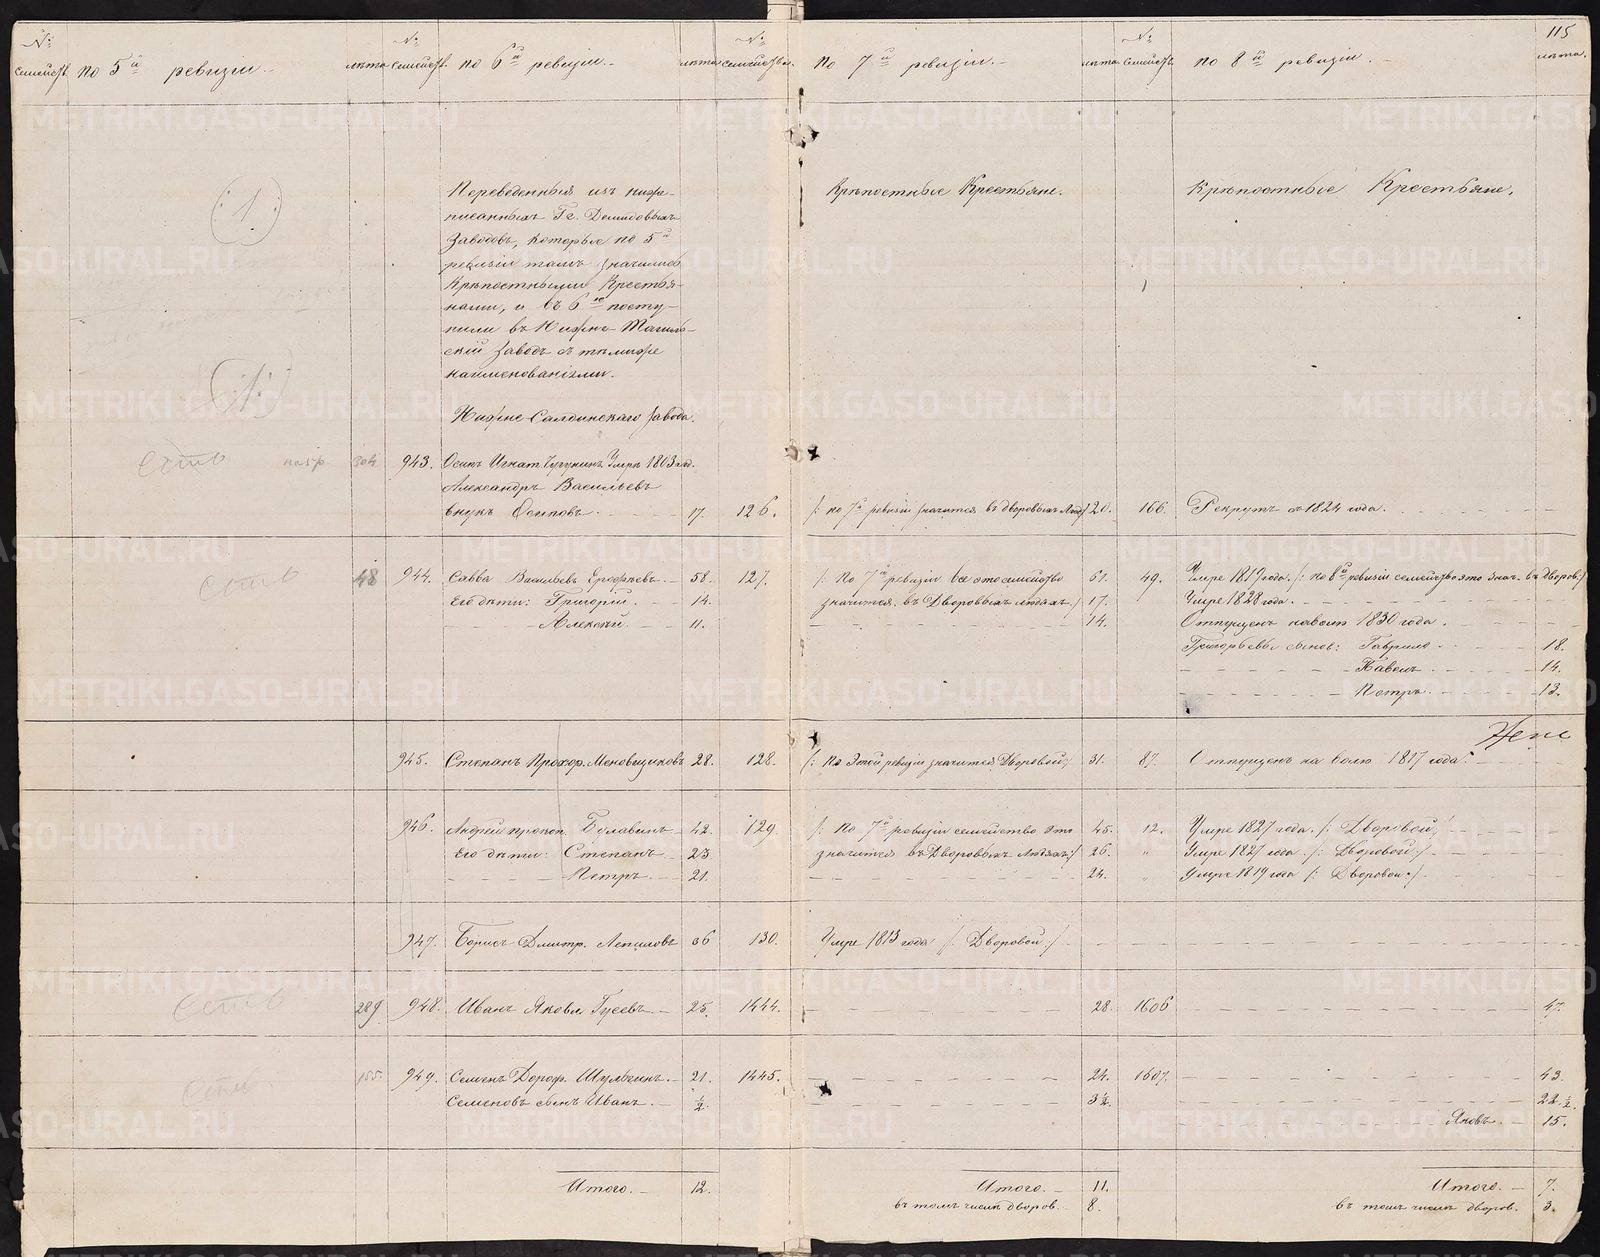 115
№ семейств. по 5й ревизіи. лѣта № семейств. по 6й ревизіи. лѣта № семейства. По 7й ревизіи. лѣта № семейств. по 8й ревизіи. лѣта.
Переведенныя изъ ниже-
писанныхъ Гг. Демидовыхъ
Заводовъ, которые по 5й
ревизіи тамъ значились
Крѣпостными Крестья-
нами, и въ 6ю посту-
пили въ Нижне Тагиль-
скій Заводъ съ тѣмиже
наименованіями.
Нижне-Салдинскаго завода.
Крѣпостные Крестьяне.
Крѣпостные Крестьяне.
(:1:)
(:1:)
есть 304 943. Осипъ Игнат. Чугунинъ Умре 1803 год.
Александръ Васильевъ
внукъ Осиповъ. 17. 126. /: по 7й ревизіи значится въ дворовыхъ Люд:/ 20. 166. Рекрутъ съ 1824 года.
есть 48 944. Савва Васильевъ Ерофѣевъ. 58. 127. /: По 7й ревизіи все это семейство 61. 49. Умре 1819 года. /: по 8й ревизіи семейство это знач. въ дворов:/
Его дѣти: Григорій. 14. значится въ Дворовыхъ людяхъ:/ 17. Умре 1828 года.
Алексѣй. 11. 14. Отпущенъ на волю 1830 года.
Григорьевы сынов: Гаврило 18.
Павелъ 14.
Петръ. 13.
945. Степанъ Прохор. Меновщиковъ 28. 128. /: По Этой ревизіи значится Дворовой:/ 31. 87. Отпущенъ на волю 1817 года.
946. Андрей прокоп. Булавинъ 42. 129. /: По 7й ревизіи семейство это 45. 12. Умре 1827 года. /: Дворовой:/
Его дѣти: Степанъ 23 значится въ Дворовыхъ Людяхъ:/ 26. " Умре 1827 года. /: Дворовой:/
Петръ 21. 24. " Умре 1819 года /: Дворовой:/
947. Борисъ Дмитр. Лепиловъ 36 130. Умре 1813 года /: Дворовой:/
есть 289 948. Иванъ Яковл Гусевъ. 25. 1444. 28. 1606 47.
есть 155. 949. Семенъ Дороф. Шульгинъ. 21. 1445. 24. 1607. 43.
Семеновъ сынъ Иванъ. ½. 3½. 22½.
Яковъ. 15.
Итого. 12. Итого. 11. Итого. 7.
въ томъ числѣ дворов. 8. въ томъ числѣ дворов. 3.
METRIKI.GASO-URAL.RU